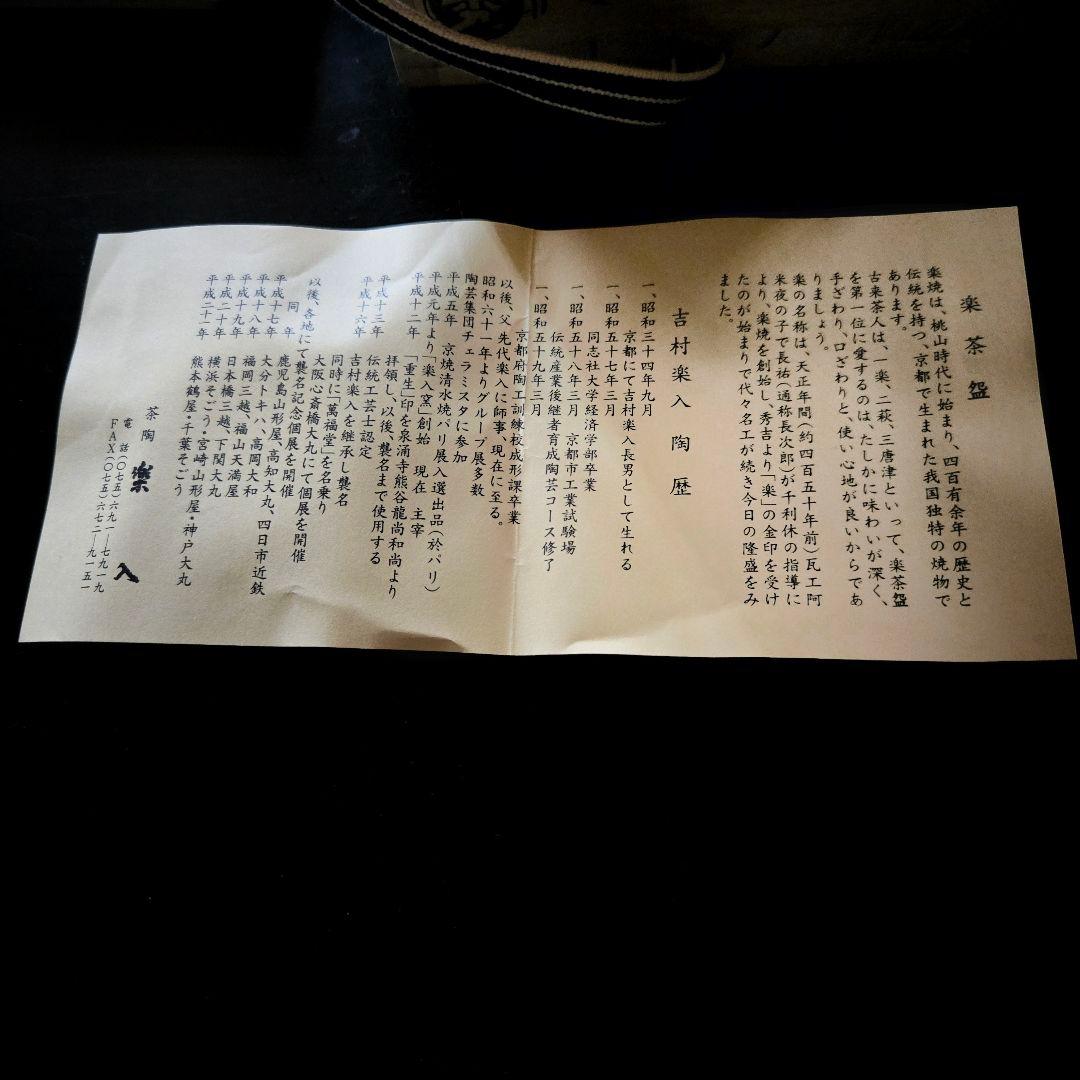 楽茶盌
楽焼は、桃山時代に始まり、四百有余年の歴史と
伝統を持つ、京都で生まれた我国独特の焼物で
あります。
古来茶人は、一楽、二萩、三唐津といって、楽茶盌
を第一位に愛するのは、たしかに味わいが深く、
手ざわり、口ざわりと、使い心地が良いからであ
りましょう。
楽の名称は、天正年間(約四百五十年前)瓦工阿
米夜の子で長祐(通称長次郎)が千利休の指導に
より、楽焼を創始し、秀吉より「楽」の金印を受け
たのが始まりで代々名工が続き今日の隆盛をみ
ました。
吉村楽入 陶歴
一、昭和三十四年九月
京都にて吉村楽入長男として生れる
一、昭和五十七年三月
同志社大学経済学部卒業
一、昭和五十八年三月 京都市工業試験場
伝統産業後継者育成陶芸コース修了
一、昭和五十九年三月
京都府陶工訓練校成形課卒業
以後、父先代楽入に師事、現在に至る。
昭和六十一年よりグループ展多数
陶芸集団チェラミスタに参加
平成五年 京焼清水焼パリ展入選出品(於パリ)
平成元年より「楽入窯」創始 現在 主宰
平成十二年 「重生」印を泉涌寺熊谷龍尚和尚より
拝領し、以後、襲名まで使用する
平成十三年 伝統工芸士認定
平成十六年 吉村楽入を継承し襲名
同時に「萬福堂」を名乗り
大阪心斎橋大丸にて個展を開催
以後、各地にて襲名記念個展を開催
同年 鹿児島山形屋、高知大丸、四日市近鉄
平成十七年 大分トキハ、高岡大和
平成十八年 福岡三越、福山天満屋
平成十九年 日本橋三越、下関大丸
平成二十年 横浜そごう・宮崎山形屋・神戸大丸
平成二十一年 熊本鶴屋・千葉そごう
茶陶 樂入
電話(〇七五)六九一―七九一九
FAX(〇七五)六七二―九一五一